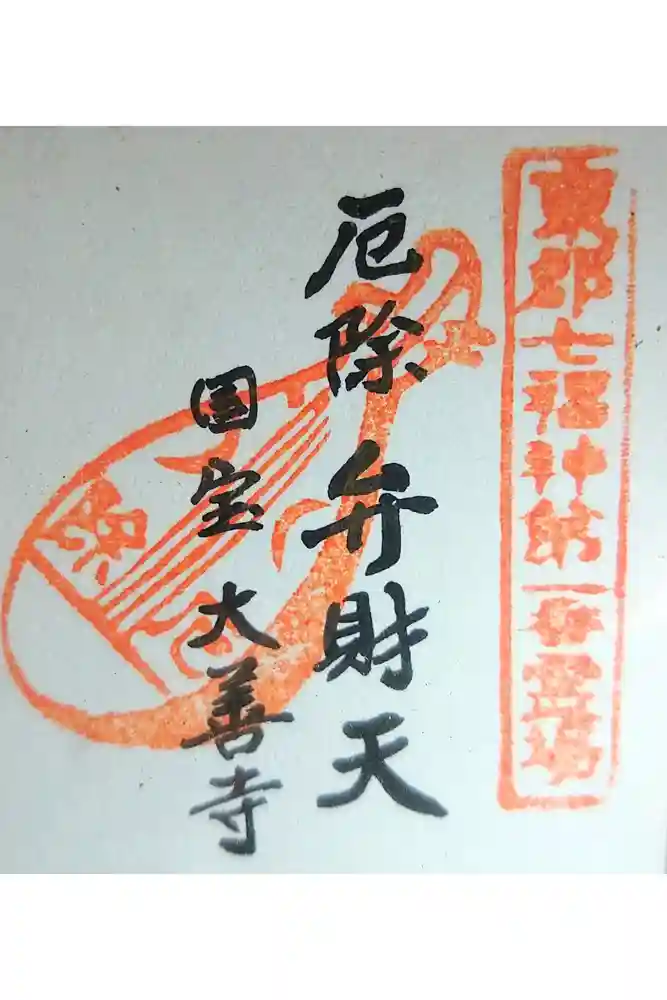 東郡七福神第一番霊場
厄除弁財天
国宝 大善寺